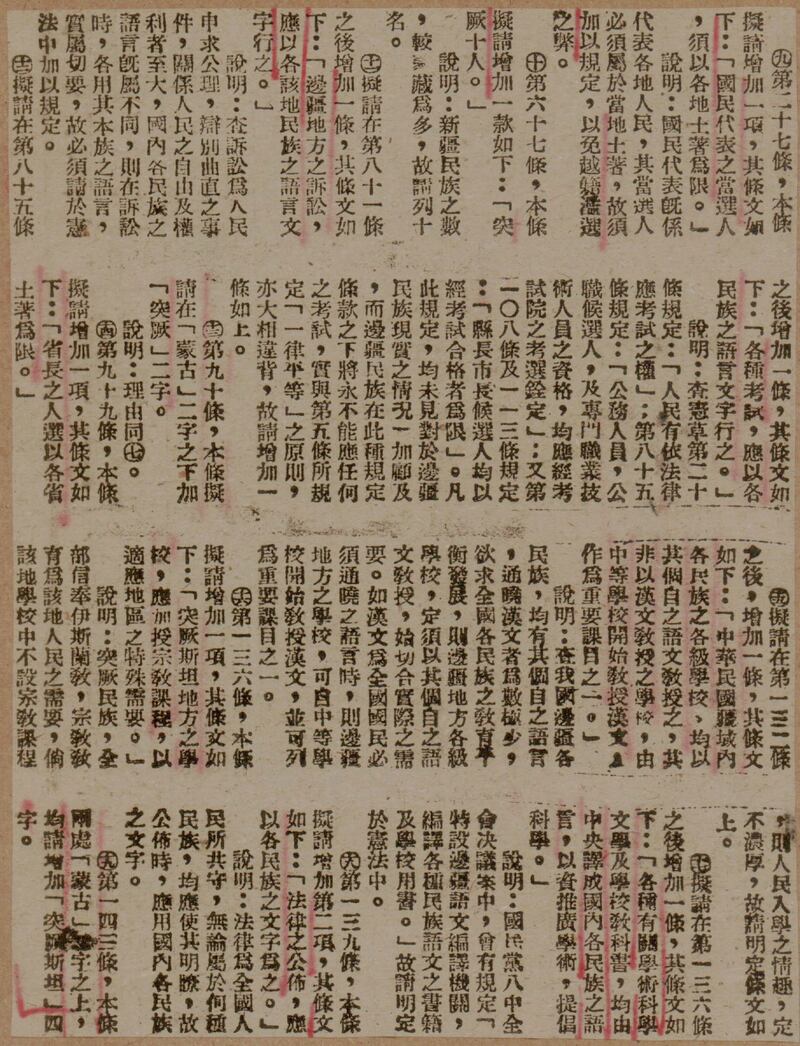 ㈨第二十七條，本條
擬請增加一項，其條文如
下：「國民代表之當選人
，須以各地土著爲限。」
說明：國民代表旣係
代表各地人民，其當選人
必須屬於當地土著，故須
加以規定，以免越籍濫選
之弊。
㈩第六十七條，本條
擬請增加一款如下：「突
厥十人。」
說明：新疆民族之數
，較 藏爲多，故請列十
名。
擬請在第八十一條
之後增加一條，其條文如
下：「邊疆地方之訴訟，
應以各該地民族之語言文
字行之。」
說明：查訴訟爲人民
申求公理，辯別曲直之事
件，關係人民之自由及權
利者至大，國內各民族之
語言旣屬不同，則在訴訟
時，各用其本族之語言，
實屬切要，故必須請於憲
法中加以規定。
擬請在第八十五條
之後增加一條，其條文如
下：「各種考試，應以各
民族之語言文字行之。」
說明：查憲草第二十
條規定：「人民有依法律
應考試之權」；第八十五
條規定：「公務人員，公
職候選人，及專門職業技
術人員之資格，均應經考
試院之考選銓定」；又第
一〇八條及一一三條規定
：「縣長市長候選人均以
經考試合格者爲限」。凡
此規定，均未見對於邊疆
民族現實之情况一加顧及
，而邊疆民族在此種規定
條款之下將永不能應任何
之考試，實與第五條所規
定「一律平等」之原則，
亦大相違背，故請增加一
條如上。
第九十條，本條擬
請在「蒙古」二字之下加
「突厥」二字。
說明：理由同㈦。
第九十九條，本條
擬請增加一項，其條文如
下：「省長之人選以各省
土著爲限。」
擬請在第一三二條
之後，增加一條，其條文
如下：「中華民國疆域內
各民族之各級學校、均以
其個自之語文敎授之，其
非以漢文敎授之學校，由
中等學校開始敎授漢文，
作爲重要課目之一。」
說明：查我國邊疆各
民族，均有其個自之語言
，通曉漢文者爲數極少，
欲求全國各民族之敎育平
衡發展，則邊疆地方各級
學校，定須以其個自之語
文敎授，始切合實際之需
要。如漢文爲全國國民必
須通曉之語言時，則邊疆
地方之學校，可自中等學
校開始敎授漢文，並可列
爲重要課目之一。
第一三六條，本條
擬請增加一項，其條文如
下：「突厥斯坦地方之學
校，應加授宗敎課程，以
適應地區之特殊需要。」
說明：突厥民族，全
部信奉伊斯蘭敎，宗敎敎
育爲該地人民之需要，倘
該地學校中不設宗敎課程
，則人民入學之情趣，定
不濃厚，故請明定條文如
上。
擬請在第一三六條
之後增加一條，其條文如
下：「各種有關學術科學
文學及學校敎科書，均由
中央譯成國內各民族之語
言，以資推廣學術，提倡
科學。」
說明：國民黨八中全
會决議案中，曾有規定「
特設邊疆語文編譯機關，
編譯各種民族語文之書籍
及學校用書。」故請明定
於憲法中。
第一三九條，本條
擬請增加第二項，其條文
如下：「法律之公佈，應
以各民族之文字爲之。」
說明：法律爲全國人
民所共守，無論屬於何種
民族，均應使其明瞭，故
公佈時，應用國內各民族
之文字。
第一四三條，本條
兩處「蒙古」 字之上，
均請增加「突厥斯坦」四
字。